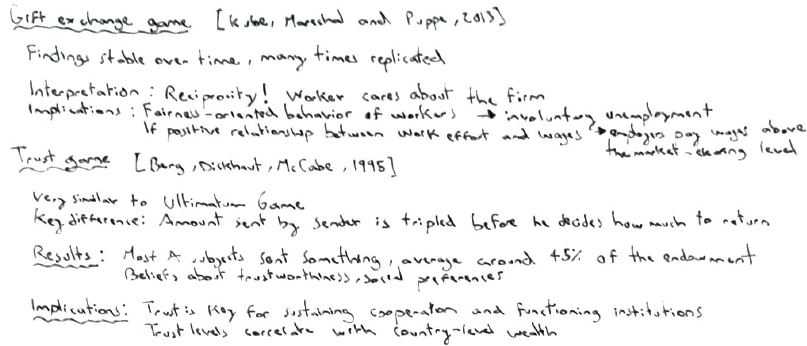 Gift exchange game [Kube, Maréchal and Puppe, 2013]
Findings stable over time, many times replicated
Interpretation: Reciprocity! Worker cares about the firm
Implications: Fairness-oriented behavior of workers → involuntary unemployment
If positive relationship between work effort and wages → employers pay wages above
the market-clearing level
Trust game [Berg, Dickhaut, McCabe, 1995]
Very similar to Ultimatum Game
Key difference: Amount sent by sender is tripled before he decides how much to return
Results: Most A subjects sent something, average around 45% of the endowment
Beliefs about trustworthiness, social preferences
Implications: Trust is key for sustaining cooperation and functioning institutions
Trust levels correlate with country-level wealth